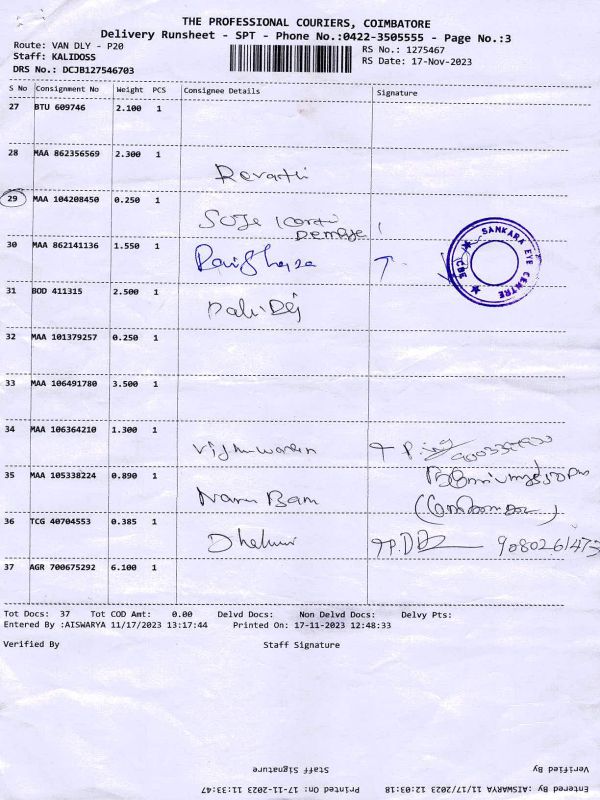 THE PROFESSIONAL COURIERS, COIMBATORE
Delivery Runsheet - SPT - Phone No.:0422-3505555 - Page No.:3
Route: VAN DLY - P20
RS No.: 1275467
Staff: KALIDOSS
RS Date: 17-Nov-2023
DRS No.: DCJB127546703
S No Consignment No Weight PCS Consignee Details Signature
27 BTU 609746 2.100 1
28 MAA 862356569 2.300 1
Revathi
29 MAA 104208450 0.250 1
30 MAA 862141136 1.550 1
SANKARA EYE CENTRE
CBE
31 BOD 411315 2.500 1
32 MAA 101379257 0.250 1
33 MAA 106491780 3.500 1
34 MAA 106364210 1.300 1
35 MAA 105338224 0.890 1
36 TCG 40704553 0.385 1
9080261473
37 AGR 700675292 6.100 1
Tot Docs: 37 Tot COD Amt: 0.00 Delvd Docs: Non Delvd Docs: Delvy Pts:
Entered By :AISWARYA 11/17/2023 13:17:44 Printed On: 17-11-2023 12:48:33
Verified By Staff Signature
Verified By Staff Signature
Entered By :AISWARYA 11/17/2023 12:03:18 Printed On: 17-11-2023 11:33:47